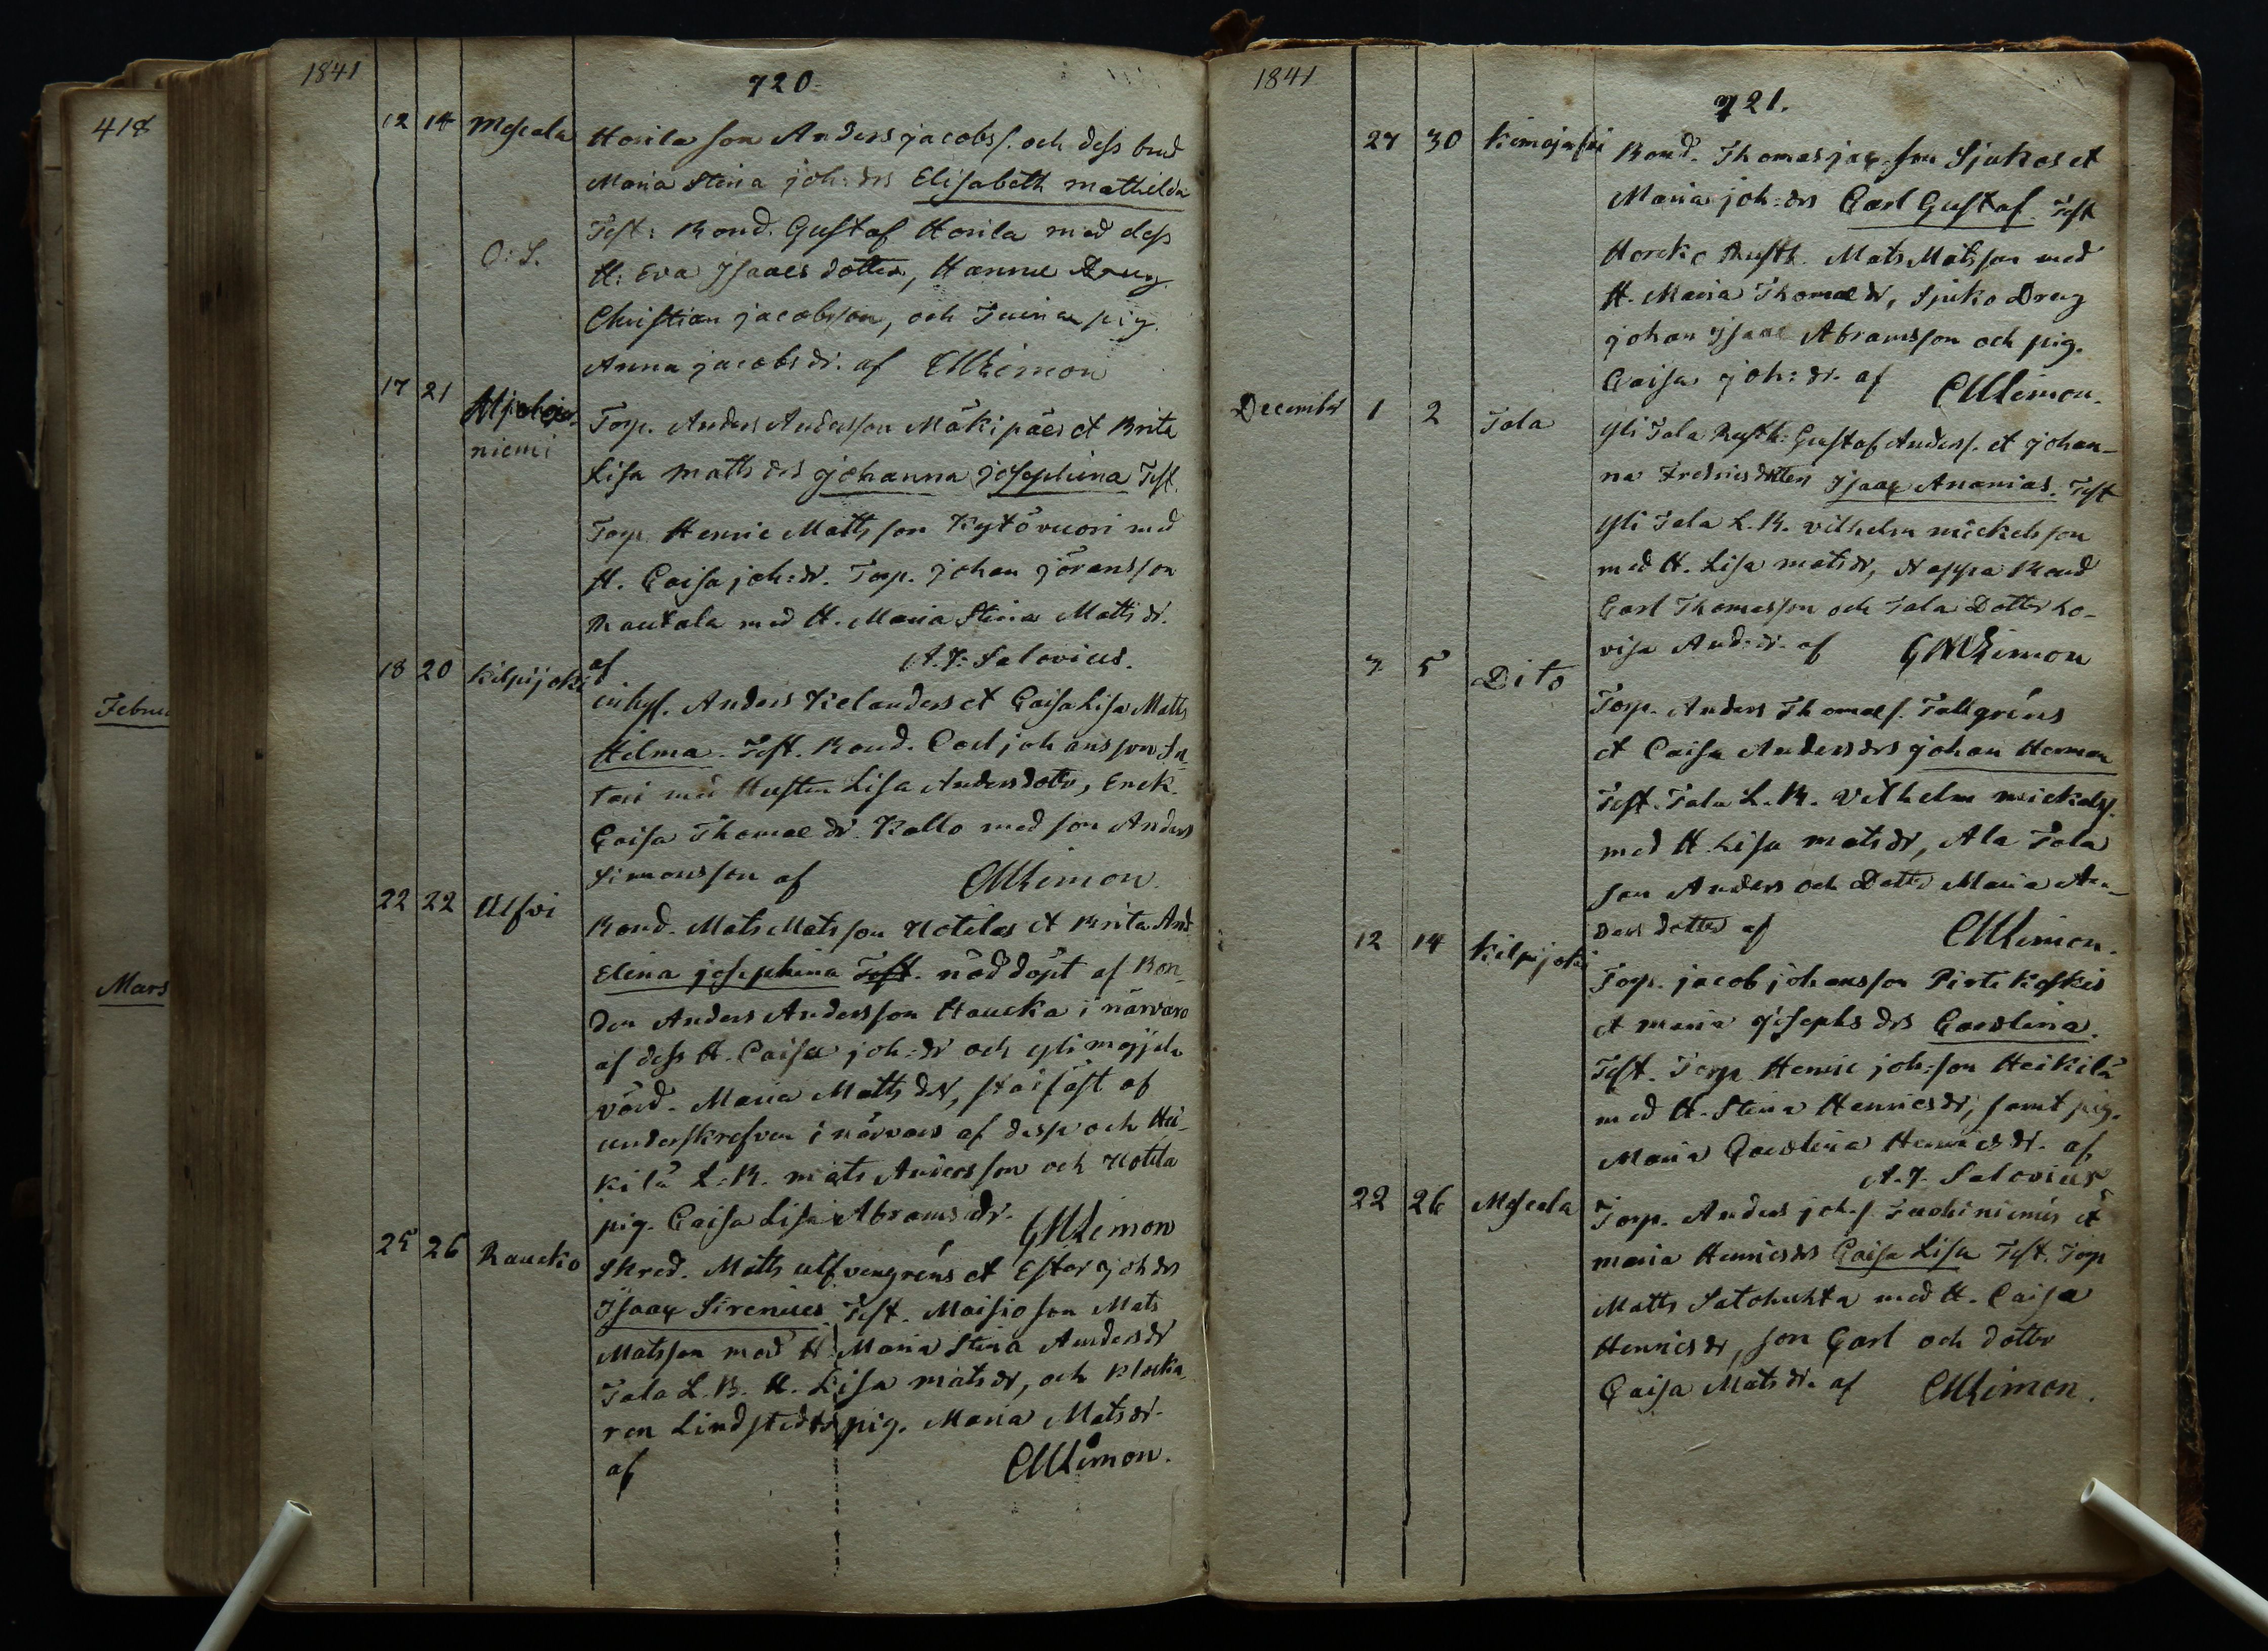 418
Februa
Mars
1841
720.
12 14 Mouala Horila son Anders Jacobss. och dess brud
Maria Stina Joh:drs Elisabeth Mathilda
Test: Bond. Gustaf Horila med dess
O:S. H: Eva Isaacs dotter, Hannu Dreng
Christian Jacobsson, och Tuina pig.
Anna Jacobs dr. af CMLimon
17 21
niemi Torp. Anders Andersson Mäkipäes et Brita
Lisa Matts drs Johanna Josephina Test.
Torp. Henric Mattsson Kytövuori med
H. Caisa Joh:dr. Torp. Johan Jöransson
Rautala med H. Maria Stina Matts dr.
af A.J. Salovius.
18 20 Kilpijoki inhys. Anders Kelanders et Caisa Lisa Matts
Hilma. Test. Bond. Carl Johansson An-
tari med Hustru Lisa Andersdotr, Enck.
Caisa Thomae dr. Kallo med son Anders
Simonsson af CMLimon.
22 22 Ulfvi Bond. Mats Matsson Uotilas et Brita And
Elina Josephina Test. nöddöpt af Bon-
den Anders Andersson Haucka i närvaro
af dess H. Caisa Joh:dr och Yli
värd. Maria Matts dr, stadfäst af
underskrefven i närvaro af desse och Hei-
kilä L:B. Mats Andersson och Uotila
pig. Caisa Lisa Abrams dr. CMLimon
25 26 Raucko Skred. Matts Ulfvengréns et Ester Joh drs
Isaac Sirenius. Test. Maisio son Mats
Matsson med H. Maria Stina Anders dr
Tala L.B. H. Lisa Mats dr, och Klocka-
ren Lindstedts pig. Maria Mats dr.
af CMLimon.
1841
721.
27 30 Kimojoki Bond. Thomas Jac.son Sjukos et
Maria Joh:drs Carl Gustaf. Test
Horcko Rusth. Mats Matsson med
H. Maria Thomae dr, Sjuko Dreng
Johan Isaac Abramsson och pig.
Caisa Joh:dr. af CMLimon.
December 1 2 Tala Yli Tala Rusth: Gustaf Anderss. et Johan-
na Fredricsdotters Isaac Ananias. Test
Yli Tala L.B. Vilhelm Mickelsson
med H. Lisa Mats dr, Noppa Bond
Carl Thomasson och Tala Dotter Lo-
visa And:dr. af CMLimon
3 5 Dito Torp. Anders Thomass. Tallgréns
et Caisa Anders drs Johan Herman
Test. Tala L.B. Vilhelm Mickelss.
med H. Lisa Mats dr, Ala Tala
son Anders och Dotter Maria An-
ders dotter af CMLimon.
12 14 Kilpijoki Torp. Jacob Johansson Pirttikoskis
et Maria Josephs drs Carolina.
Test. Torp. Henric Joh:son Heikilä
med H. Stina Henrics dr, samt pig.
Maria Carolina Henrics dr. af
A.J. Salovius
22 26 Mouala Torp. Anders Joh.s. Tuohiniemis et
Maria Henrics drs Caisa Lisa Test. Torp
Matts Satokuhta med H. Caisa
Henrics dr, son Carl och dotter
Caisa Mats dr. af CMLimon.